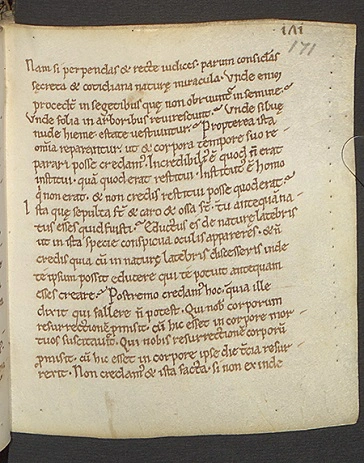 171
171
Nam si perpendas & recte iudices. parum consideras
secreta & cotidiana naturę miracula. Vnde enim
procedit in segetibus quę non obruunt̄ in semine.
Vnde folia in arboribus reuirescunt. Vnde siluę
nudę hieme. estate uestiuntur. Propterea ista
omia reparantur. ut & corpora tempore suo re-
parari posse credam. Incredibili' ē quod n̄ erat
institui. quā quod erat restitui. Instituit' ē homo
q̇ non erat. & non credis restitui posse quod erat.
Ista quę sepulta st̄ & caro & ossa st̄. tu antequā na-
tus esses quid fuisti. Eductus es de naturę latebris
ut in ista specie conspicua oculis appareres. & n̄
credis quia cū in naturę latebris discesseris inde
te ipsum possit educere qui te potuit antequam
esses creare. Postremo credam' hoc. quia ille
dixit qui fallere n̄ potest. Qui nob corporum
resurrectionē pmisit. cū hic esset in corpore mor-
tuos suscitauit. Qui nobis resurrectionē corporū
pmisit. cū hic esset in corpore ipse die tcia resur-
rexit. Non credam' & ista facta. si non exinde